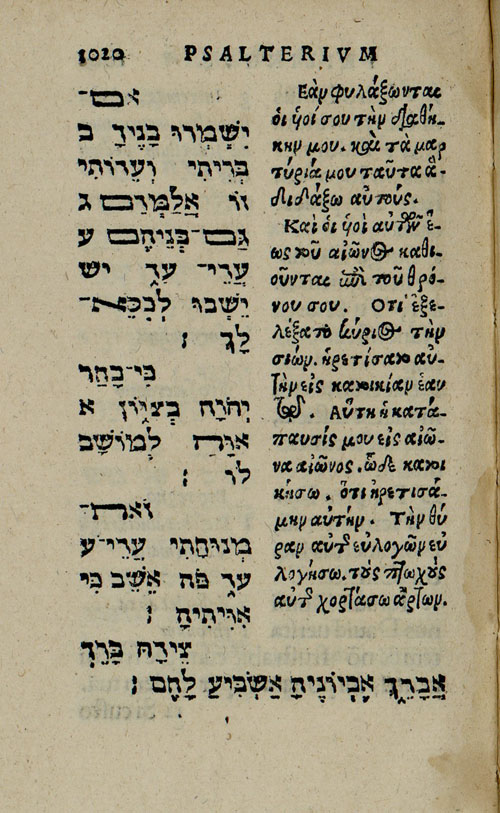 1020 PSALTERIVM
אִם־
יִשְׁמְרוּ בָנֶיךָ ב
בְּרִיתִי וְעֵדֹותִי
זוֹ אֲלַמְּדֵם ג
גַּם־בְּנֵיהֶם ע
עֲדֵי־ עַד יש
יֵשְׁבוּ לְכִסֵּא־
לָךְ :
כִּי־בָחַר
יְהֹוָה בְּצִיֹּון א
אִוָּהּ לְמוֹשָׁב
לוֹ :
זֹאת־
מְנוּחָתִי עֲדֵי־ע
עַד פֹּה אֵשֵׁב כִּי
אִוִּיתִיהָ :
צֵידָהּ בָּרֵךְ
אֲבָרֵךְ אֶבְיוֹנֶיהָ אַשְׂבִּיעַ לָחֶם :
Εὰν φυλάξωνται
ὁι ὑοί σου τὴν διαθή-
κην μου. καὶ τὰ μαρ
τύριά μου ταῦτα ἃ-
διδάξω αὐτούς.
Καὶ ὁι ὑοὶ αὐτῶν ἕ-
ως τοῦ αἰῶνος καθι-
οῦνται ἐπὶ τοῦ θρό-
νου σου. Οτι ἐξε-
λέξατο κύριος τὴν
σιών. ᾑρετίσατο αὐ-
τὴν εἰς κατοικίαν ἑαυ
τῷ. Αὕτη ἡ κατά-
παυσίς μου εἰς αἰῶ-
να αἰῶνος. ὧδε κατοι
κήσω. ὅτι ᾑρετισά-
μην αὐτήν. Τὴν θύ
ραν αὐτῆς εὐλογῶν εὐ
λογήσω. τοὺς πτωχοὺς
αὐτῆς χορτάσω ἄρτων.